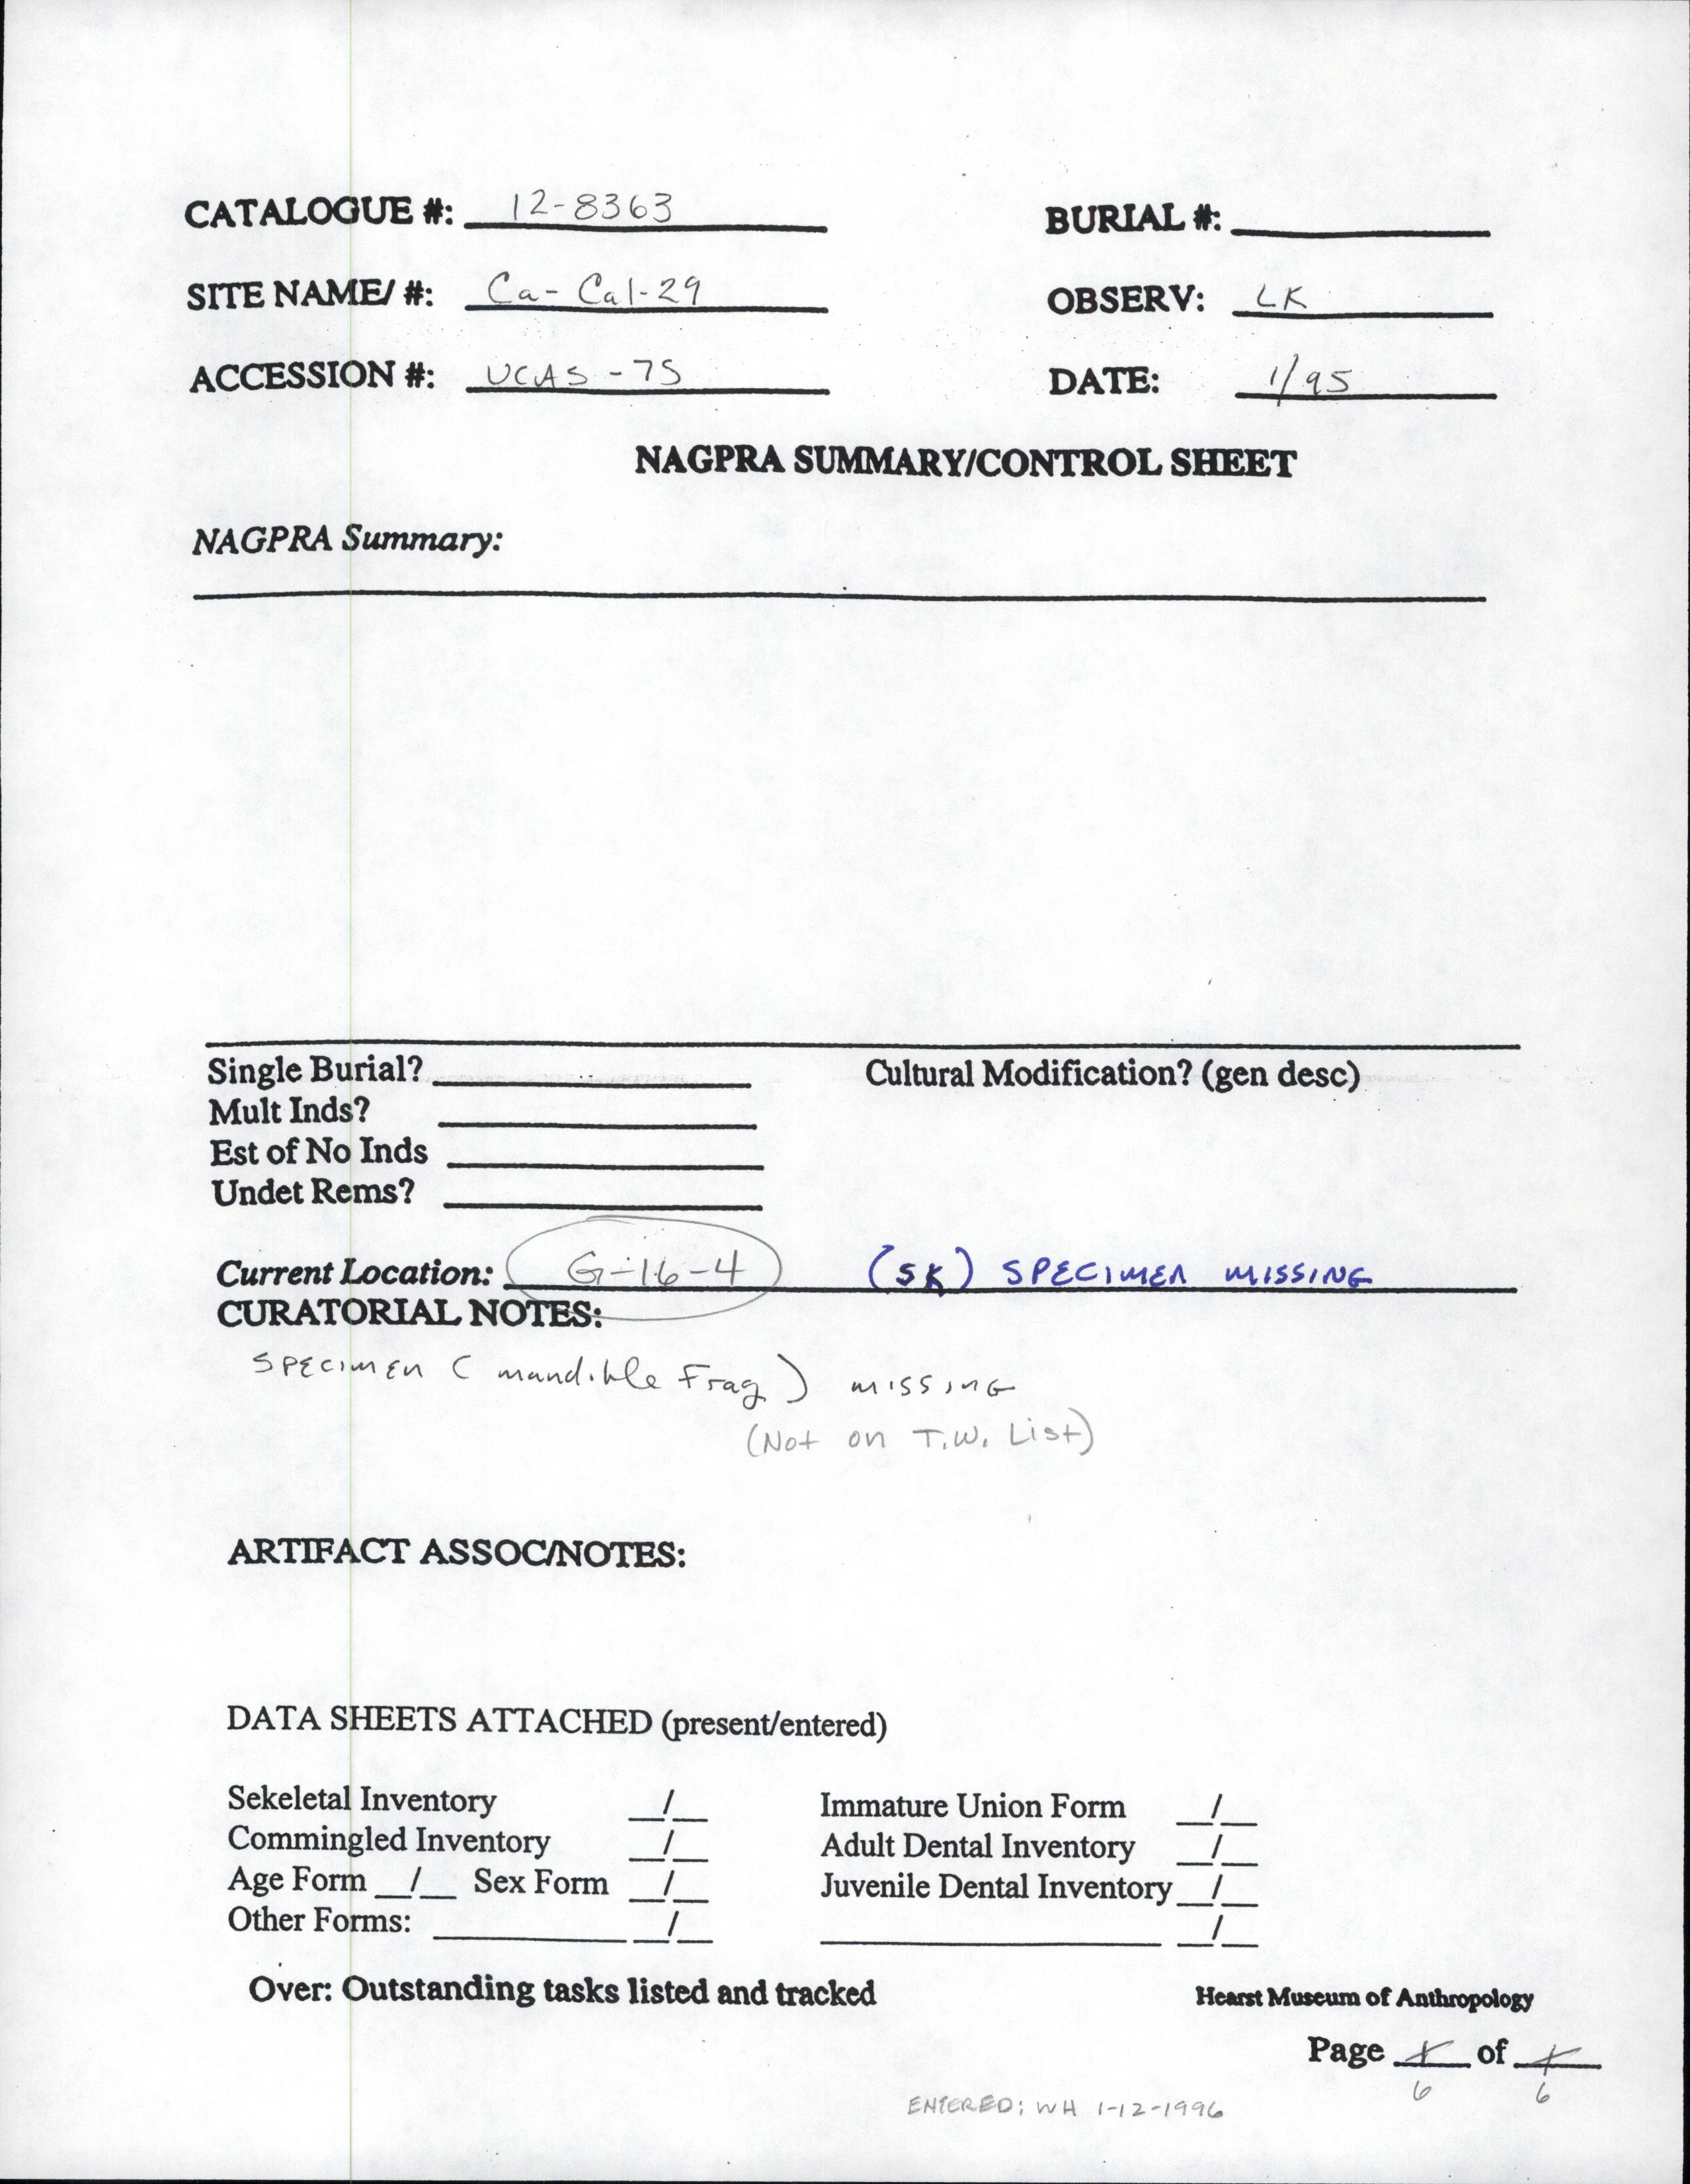 CATALOGUE #: 12-8363 BURIAL #:
SITE NAME/ #: Ca-Cal-29 OBSERV: LK
ACCESSION #: UCAS-75 DATE: 1/95
NAGPRA SUMMARY/CONTROL SHEET
NAGPRA Summary:
Single Burial? Cultural Modification? (gen desc)
Mult Inds?
Est of No Inds
Undet Rems?
Current Location: G-16-4 (SK) SPECIMEN MISSING
CURATORIAL NOTES:
SPECIMEN (mandible Frag) MISSING
(Not on T.W. List)
ARTIFACT ASSOC/NOTES:
DATA SHEETS ATTACHED (present/entered)
Sekeletal Inventory __/__ Immature Union Form __/__
Commingled Inventory __/__ Adult Dental Inventory __/__
Age Form __/__ Sex Form __/__ Juvenile Dental Inventory __/__
Other Forms: __/__ __/__
Over: Outstanding tasks listed and tracked Hearst Museum of Anthropology
Page 1 of 1
6 6
ENTERED: WH 1-12-1996